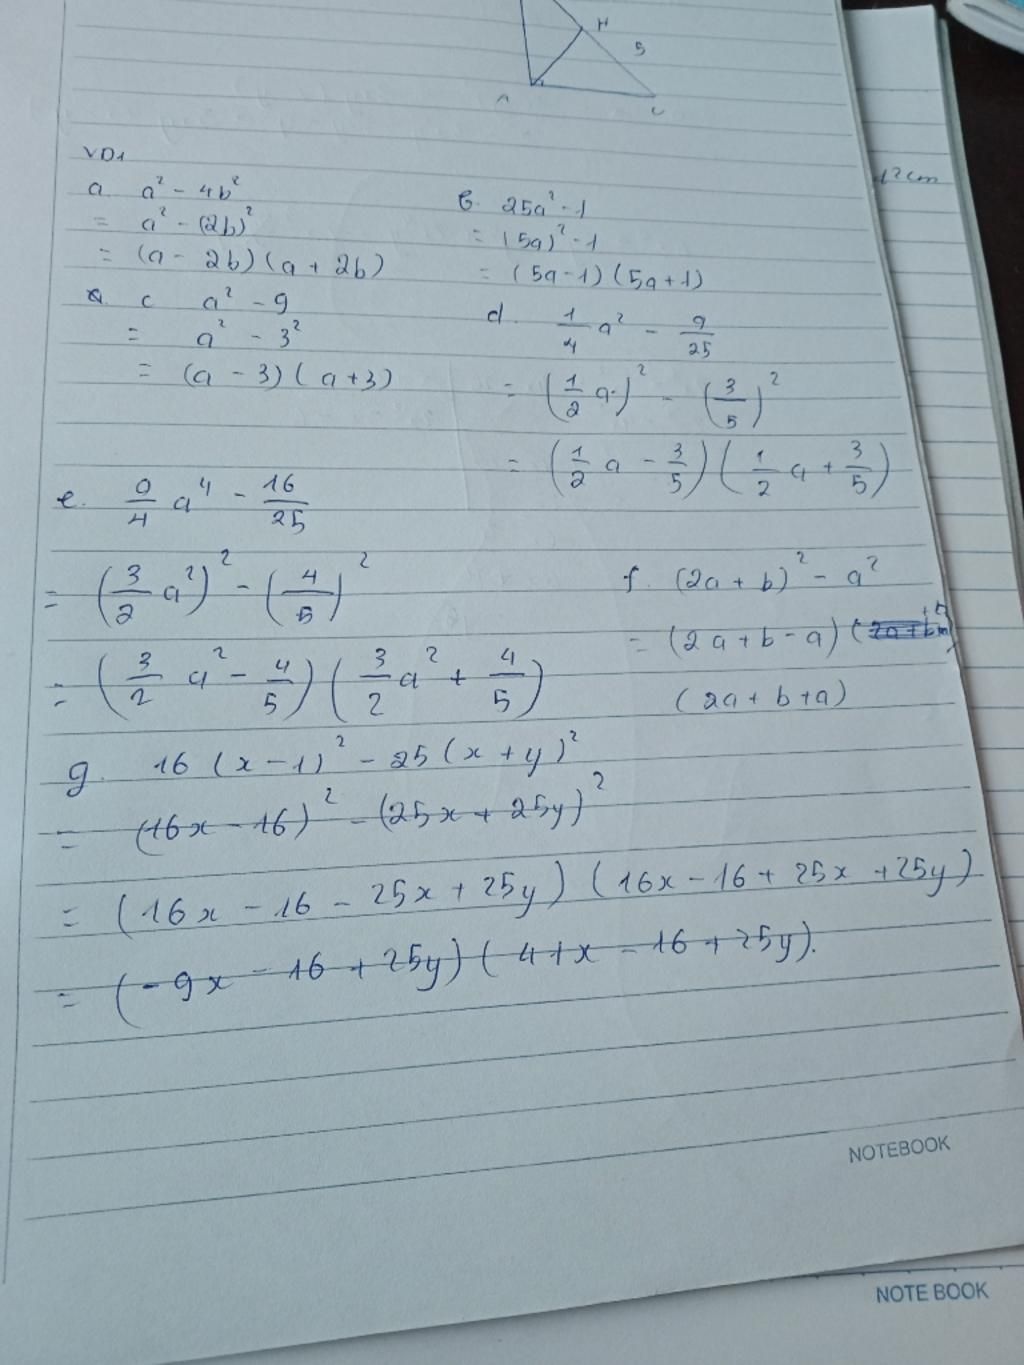 H
5
A
C
12cm
VD1
a. a² - 4b²
= a² - (2b)²
= (a - 2b)(a + 2b)
b. 25a² - 1
= (5a)² - 1
= (5a - 1)(5a + 1)
c a² - 9
= a² - 3²
= (a - 3)(a + 3)
d. 1/4 a² - 9/25
= (1/2 a)² - (3/5)²
= (1/2 a - 3/5)(1/2 a + 3/5)
e. 9/4 a⁴ - 16/25
= (3/2 a²)² - (4/5)²
= (3/2 a² - 4/5)(3/2 a² + 4/5)
f. (2a + b)² - a²
= (2a + b - a)
(2a + b + a)
g. 16(x - 1)² - 25(x + y)²
= (16x - 16)² - (25x + 25y)²
= (16x - 16 - 25x + 25y)(16x - 16 + 25x + 25y)
= (-9x - 16 + 25y)(41x - 16 + 25y).
NOTEBOOK
NOTE BOOK